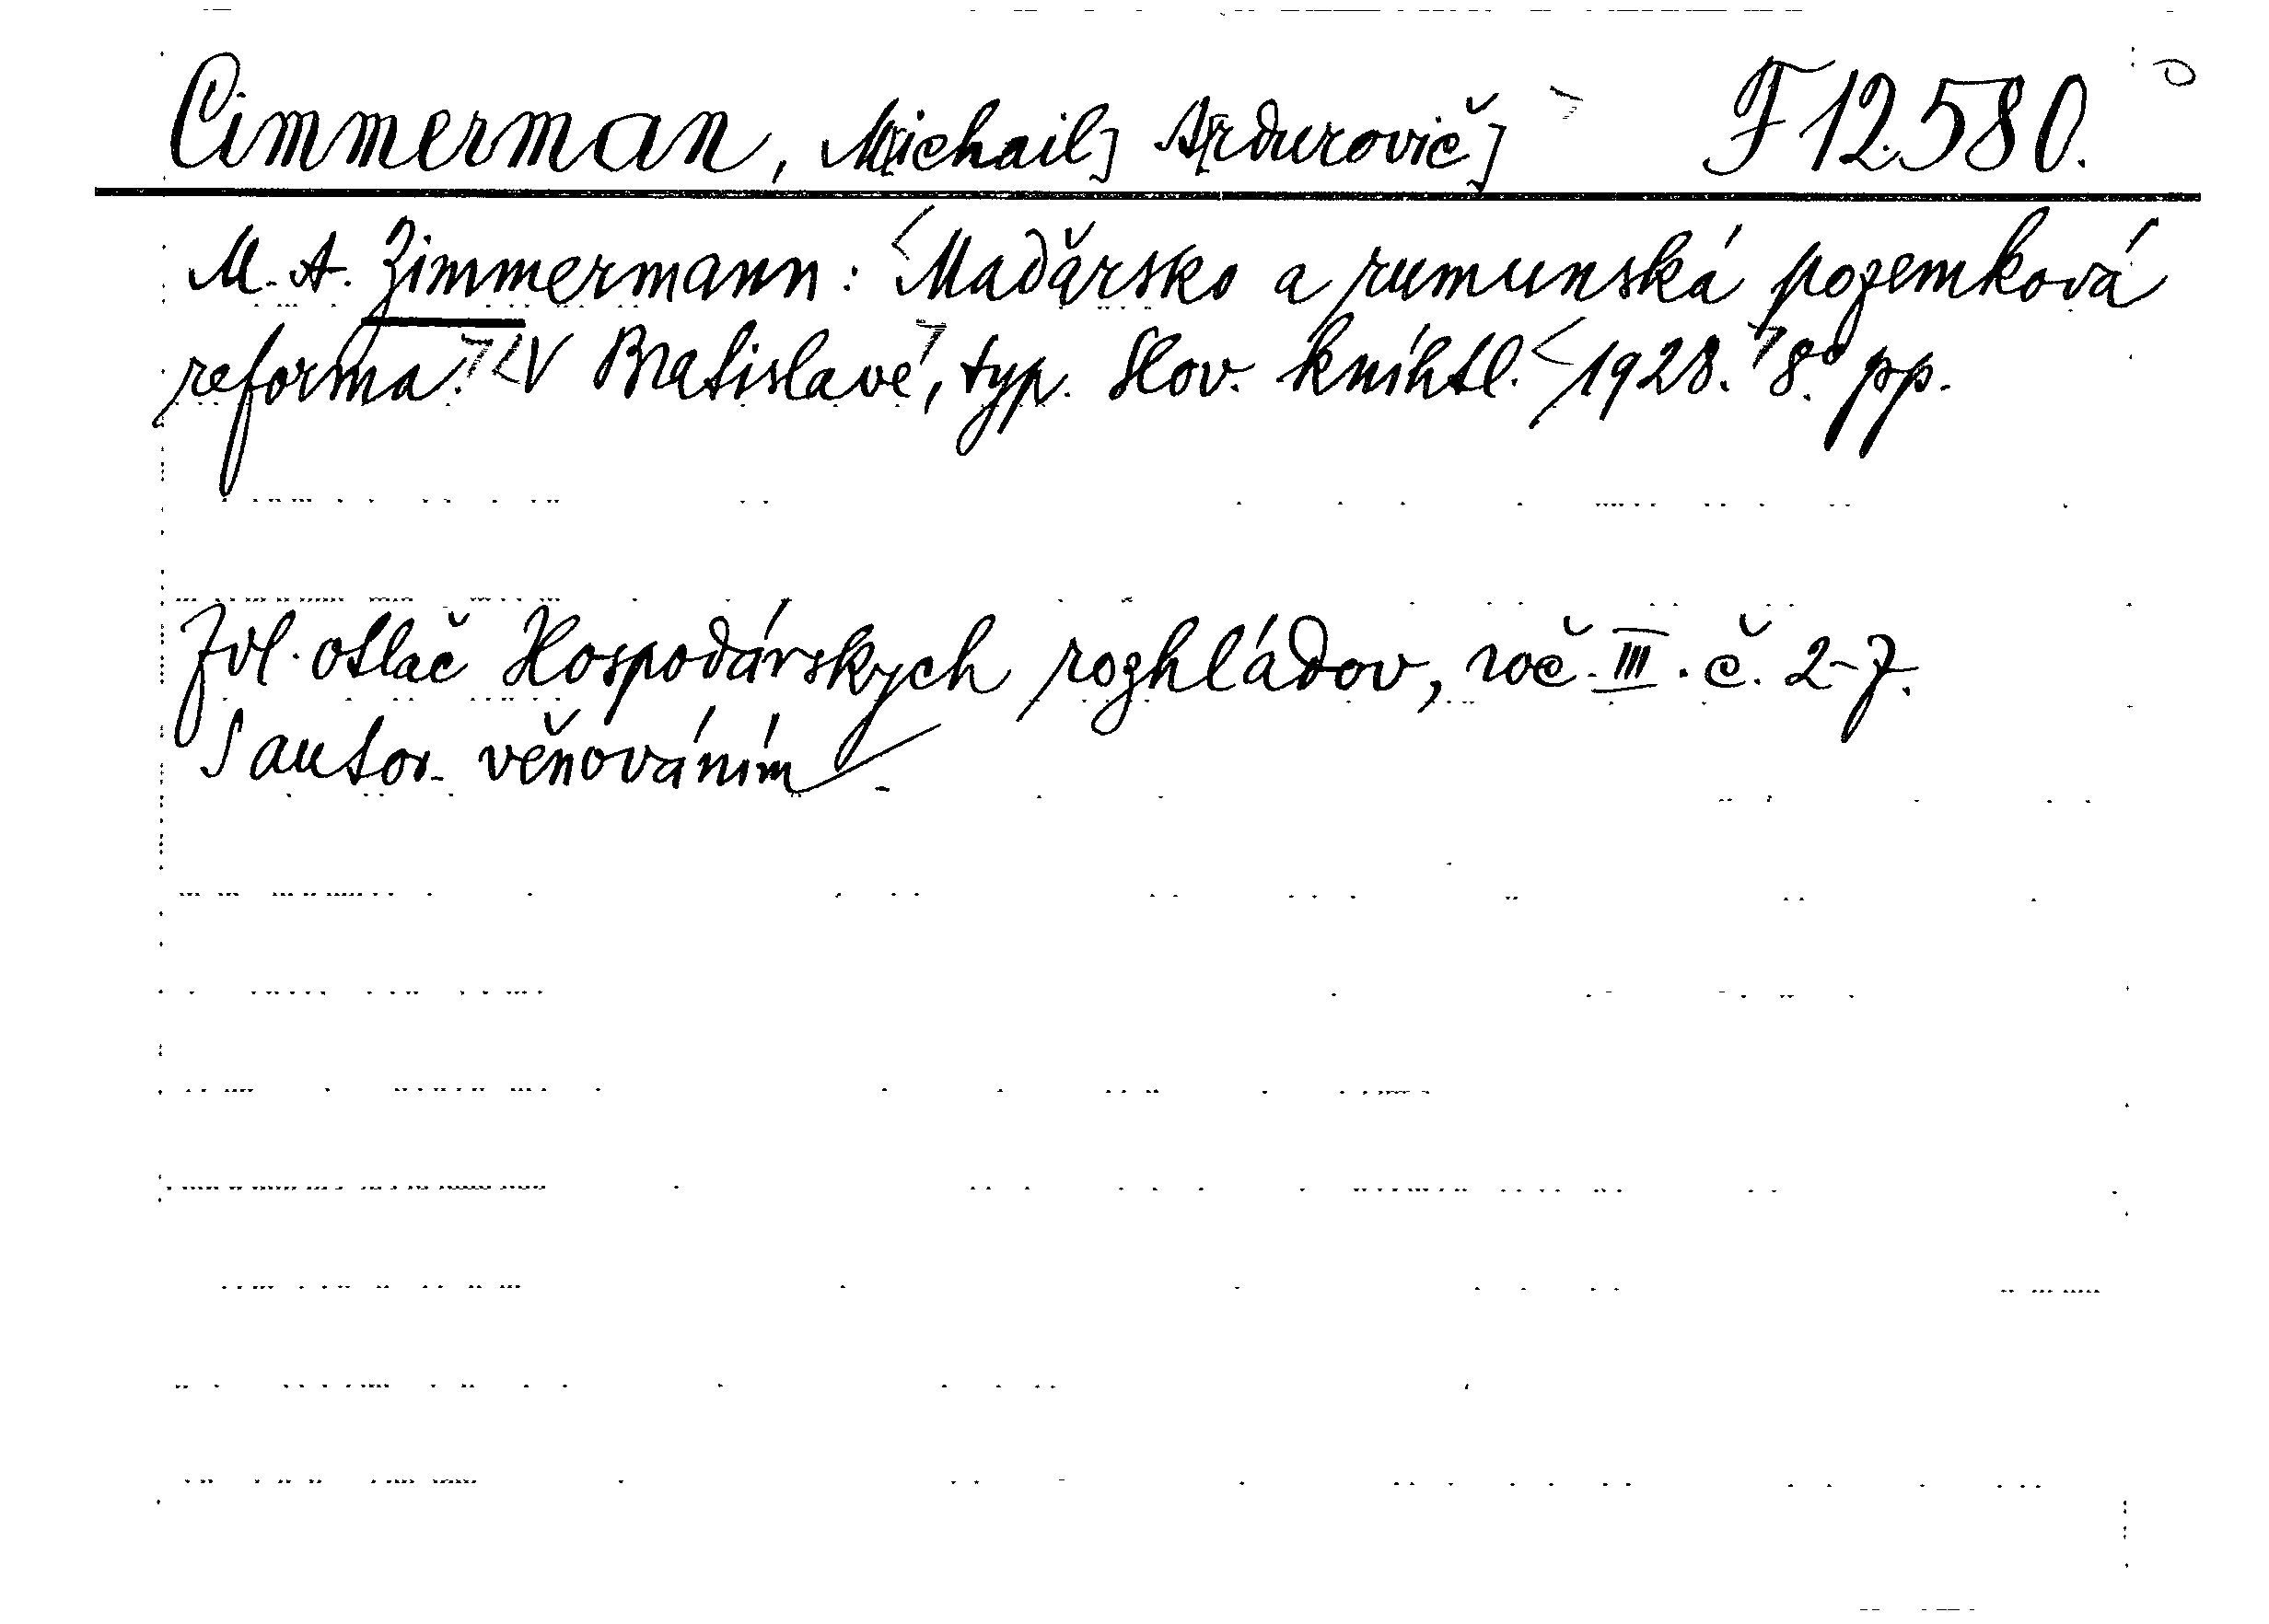 Cimmerman, M[ichail] A[rdurovič] F 12.580.
M. A. Zimmermann: <Maďarsko a rumunská pozemková
reforma.> <V Bratislavě>, typ. Slov. kníhtl. <1928.> 8° pp.
Zvl. otlač Hospodárskych rozhládov, roč. III. č. 2-7.
S autor. věnováním.